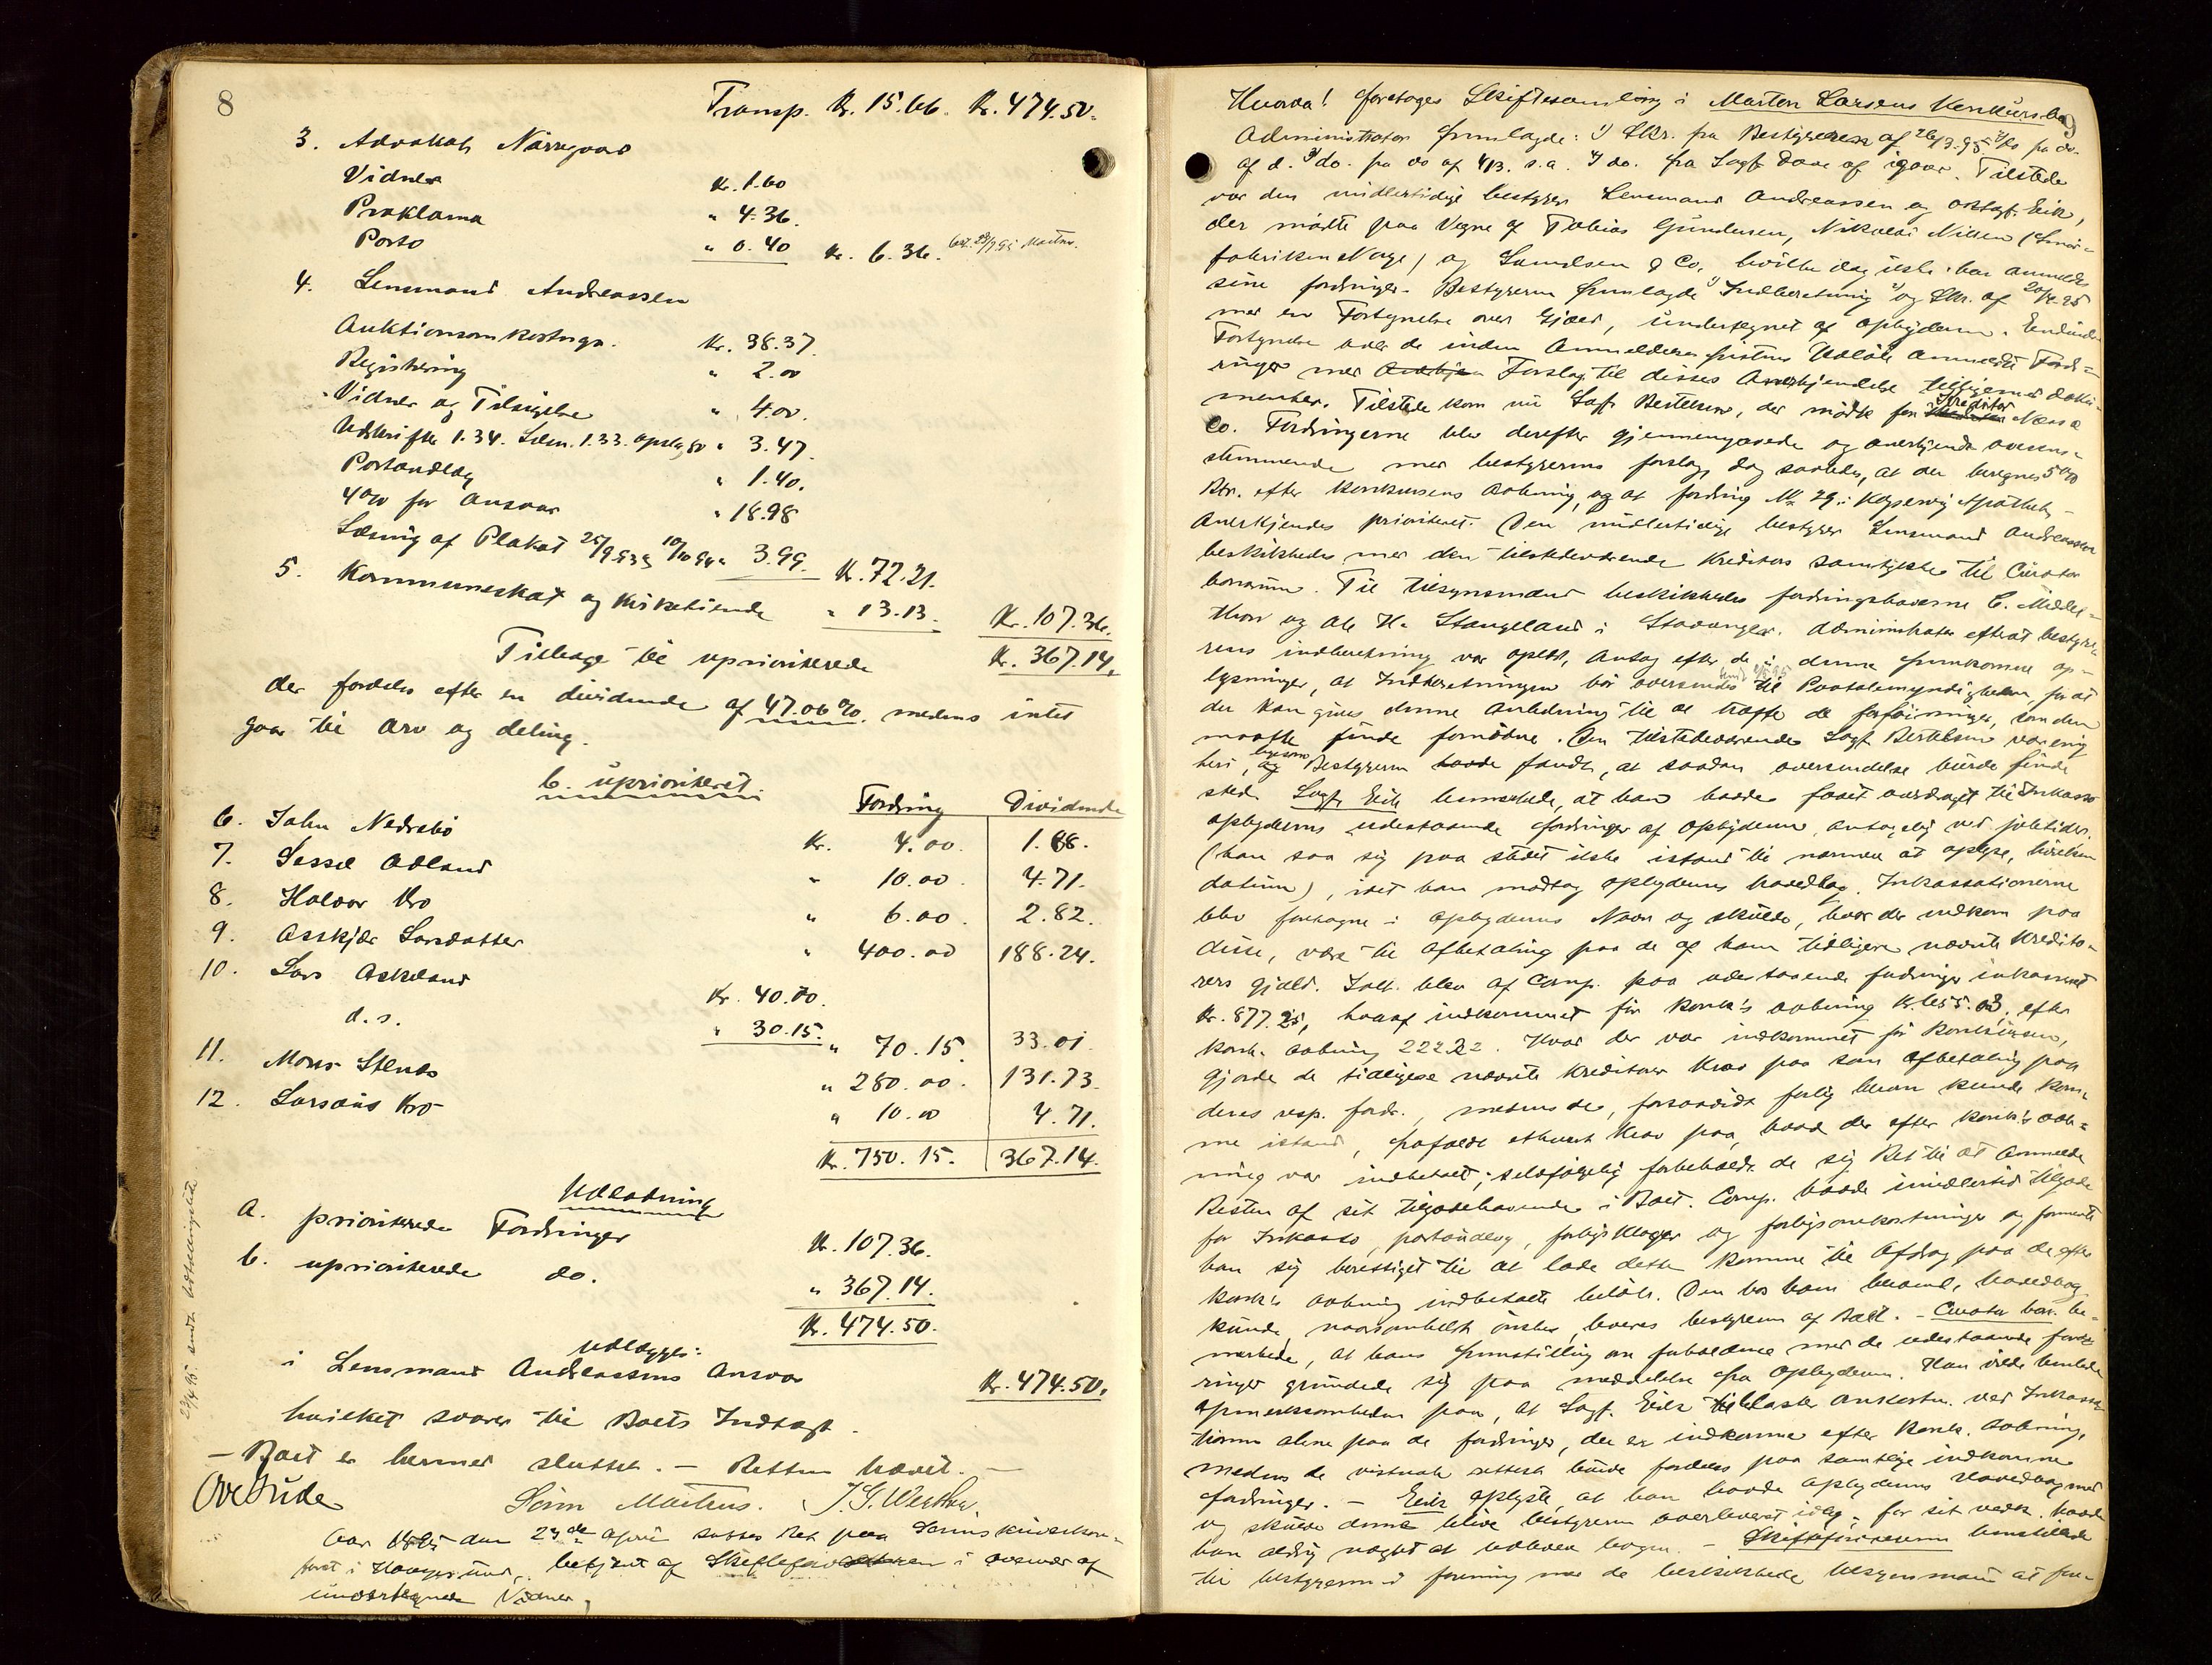 8
Transp. Kr. 15.66. Kr. 474.50.
3. Advokat Nørregaard
Vidner Kr. 1.60
Proklama " 4.36.
Porto " 0.40 Kr. 6.36.
4. Lensmand Andreassen
Auktionsomkostngr. Kr. 38.37.
Registrering " 2.00
Vidner og Tilsigelse " 4.00.
Udskrifter 1.34. Læsn. 1.33. opslag 80 " 3.47.
Portoudlæg " 1.40.
4 % for Ansvar " 18.98
Læsning af Plakat 25/9 93 & 10/10 94 " 3.99. Kr. 72.21.
5. Kommuneskat og Kirketiende " 13.13. Kr. 107.36.
Tilbage til uprioriterede Kr. 367.14.
der fordeles efter en dividende af 47.06 %. medens intet
gaar til arv og deling.
b. uprioriteret.
Fordring Dividende
6. John Nedrebø Kr. 4.00. 1.88.
7. Sessel Ådland " 10.00. 4.71.
8. Halvor Kro " 6.00. 2.82.
9. Asskjær Larsdatter " 400.00 188.24.
10. Lars Askeland Kr. 40.00.
d. s. " 30.15. " 70.15. 33.01.
11. Mons Stensø " 280.00. 131.73.
12. Larsaus Kro " 10.00 4.71.
Kr. 750.15. 367.14.
Udlodning
a. prioriterede Fordringer Kr. 107.36.
b. uprioriterede do. " 367.14.
Kr. 474.50.
udlægges:
i Lensmand Andreassens Ansvar Kr. 474.50.
hvilket svarer til Boets Indtægt.
– Boet er hermed sluttet. – Retten hævet. –
Sørin Martens. J. G. Westbø
Aar 1895 den 23de april sattes Ret paa Sorenskriverkon-
toret i Haugesund, betjent af Skifteforvalteren i overvær af
undertegnede Vidner,
Hvorda! foretoges Skiftesamling i Morten Larsens Konkursbo
9
Administrator fremlagde: 1) Skr. fra Bestyreren af 26/3.95. 2) do fra do.
af d. 3) do. fra do af 4/13. s.a. 4) do. fra Sagf. Daae af igaar. Tilstede
var den midlertidige bestyrer Lensmand Andreassen og oasagf. Eik,
der mødte paa Vegne af Tobias Gundersen, Nikolai Nilsen (Smør-
fabriken Norge) og Samelsen & Co. hvilke dog ikke har anmeldt
sine fordringer. Bestyreren fremlagde 1) Indberetning 2) og Skr. af 20/4.95
med en Fortegnelse over Gjæld, undertegnet af opbyderen. Endvidere
Fortegnelse over de inden Anmeldelsesfristens Udløb anmeldte Ford-
ringer med Forslag til disses Anerkjendelse tilligemed doku-
menter. Tilstede kom nu Sagf. Bertelsen, der mødte for Kreditor Næss &
Co. Fordringerne blev derefter gjennemgaaede og anerkjendt overens-
stemmende med bestyrerens forslag, dog saaledes, at der beregnes 5 %
Rtr. efter konkursens aabning, og at fordring No 29: Kopervig Apothek,
anerkjendes prioriteret. Den midlertidige bestyrer Lensmand Andreassen
beskikkedes med den tilstedeværende kreditors samtykke til Curator
bonorum. Til tilsynsmænd beskikkedes fordringshaverne C. Middel-
thon og Ole H. Stangeland i Stavanger. Administrator efterat bestyre-
rens indberetning var oplæst, antog efter de i denne fremkomne op-
lysninger, at Indberetningen bør oversendes til Paatalemyndigheden, for at
der kan gives denne anledning til at træffe de forføininger, som den
maatte finde fornødne. Den tilstedeværende Sagf. Bertelsen var enig
heri, ligesom Bestyreren fandt, at saadan oversendelse burde finde
sted. Sagf. Eik bemærkede, at han havde faaet overdraget til Inkasso
opbyderens udestaaende fordringer af opbyderen, antagelig ved juletider.
(han saa sig paa stedet ikke istand til nærmere at oplyse, hvilken
datum), idet han modtog opbyderens hovedbog. Inkassationerne
blev foretagne i opbyderens Navn og skulde, hvor der indkom paa
disse, være til afbetaling paa de af ham tidligere nævnte kredito-
rers gjæld. Ialt blev af Comp. paa udestaaende fordringer inkasseret
Kr. 877.25, hvoraf indkommet før konk's aabning Kr. 655.03, efter
konk. aabning 222.22. Hvad der var indkommet før konkursen,
gjorde de tidligere nævnte kreditorer krav paa som afbetaling paa
deres resp. fordr., medens de, forsaavidt forlig herom kunde kom-
me istand, frafaldt ethvert krav paa, hvad der efter konk's aab-
ning var indbetalt; selvfølgelig forbeholdt de sig Ret til at anmelde
Resten af sit tilgodehavende i Boet. Comp. havde imidlertid tilgode
for Inkasso, portoudlæg, forligsklager og forligsomkostninger og formente
han sig berettiget til at lade dette komme til Afdrag paa de efter
konk's aabning indbetalte beløb. Den hos ham beroende hovedbog
kunde, naarsomhelst ønskes, leveres bestyreren af Boet. – Curator bon. be-
mærkede, at hans fremstilling om forholdene med de udestaaende ford-
ringer grundede sig paa meddelelse fra opbyderen. Han vilde henlede
opmerksomheden paa, at Sagf. Eik tillaster omkostn. ved Inkassa-
tionen alene paa de fordringer, der er indkomne efter konk. aabning,
medens de vistnok rettest burde fordeles paa samtlige indkomne
fordringer. – Eik oplyste, at han havde opbyderens Hovedbog med
og skulde denne blive bestyreren overleveret idag; for sit vedk. havde
han aldrig nægtet at udlevere bogen. – Skifteforvalteren henstillede
til bestyreren i forening med de beskikkede tilsynsmænd at fore-